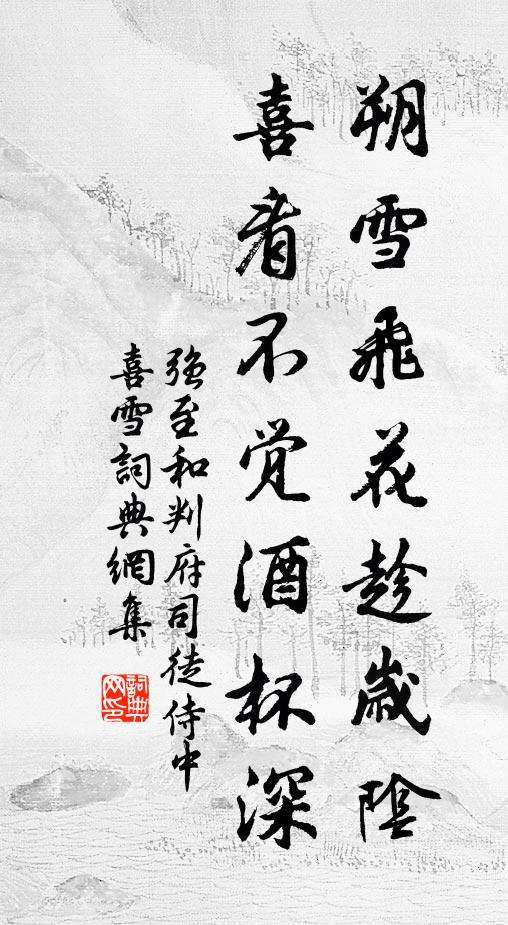 朔雪飛花趁歲陰
喜看不觉酒杯深
強至和判府司徒侍中
喜雪詞典網集
詞典
网印